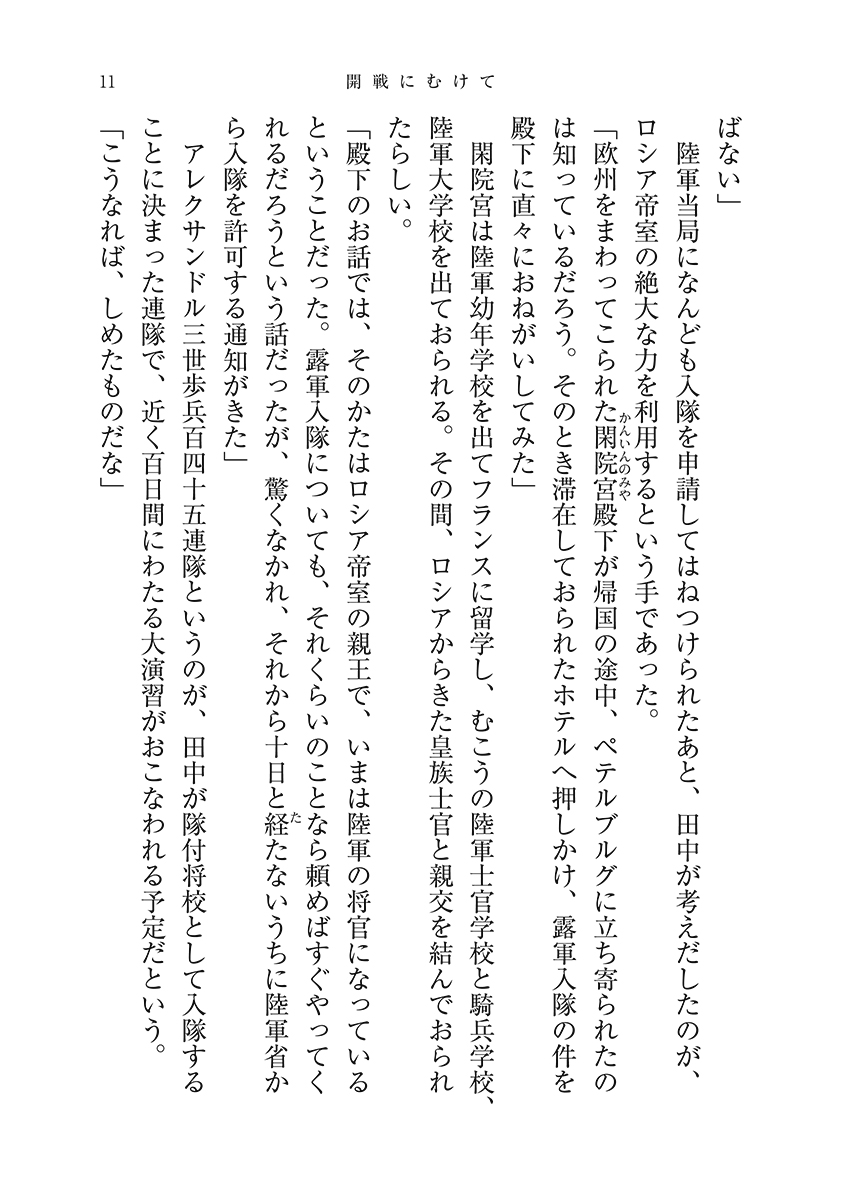 11
開戦にむけて
ばない」
　陸軍当局になんども入隊を申請してはねつけられたあと、田中が考えだしたのが、
ロシア帝室の絶大な力を利用するという手であった。
「欧州をまわってこられた閑院宮殿下が帰国の途中、ペテルブルグに立ち寄られたの
かんいんのみや
は知っているだろう。そのとき滞在しておられたホテルへ押しかけ、露軍入隊の件を
殿下に直々におねがいしてみた」
　閑院宮は陸軍幼年学校を出てフランスに留学し、むこうの陸軍士官学校と騎兵学校、
陸軍大学校を出ておられる。その間、ロシアからきた皇族士官と親交を結んでおられ
たらしい。
「殿下のお話では、そのかたはロシア帝室の親王で、いまは陸軍の将官になっている
ということだった。露軍入隊についても、それくらいのことなら頼めばすぐやってく
れるだろうという話だったが、驚くなかれ、それから十日と経たないうちに陸軍省か
た
ら入隊を許可する通知がきた」
　アレクサンドル三世歩兵百四十五連隊というのが、田中が隊付将校として入隊する
ことに決まった連隊で、近く百日間にわたる大演習がおこなわれる予定だという。
「こうなれば、しめたものだな」